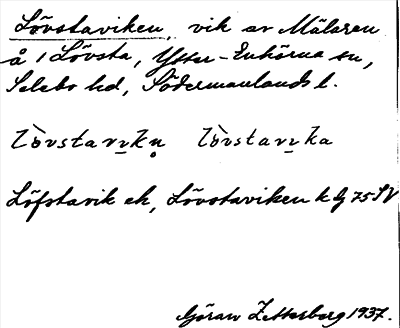 Lövstaviken, vik av Mälaren
å 1 Lövsta, Ytter-Enhörna sn,
Selebo hd, Södermanlands l.
lòvstavıkn̥ lòvstavıka
Löfstavik ek, Lövstaviken k G 75 SV
Göran Zetterberg 1937.